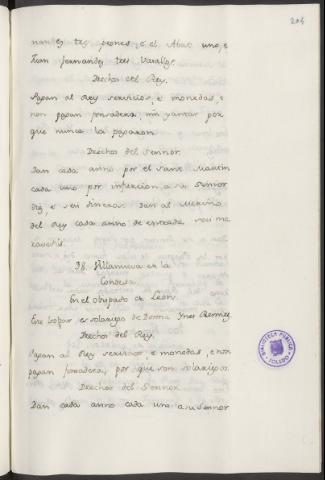 204
nandez tres peones, e el Abat uno, e
Juan Fernandez tres Vasallos.
Derechos del Rey.
Pagan al Rey servicios, e monedas, e
non pagan fonsadera, nin yantar por
que nunca la pagaron.
Derechos del Sennor.
Dan cada anno por el Sant Martin
cada uno por infurcion a su Sennor
diz, e seis dineros. Dan al Merino
del Rey cada anno de entrada seis ma
ravedis.
Villanueva en la
Condesa.
En el obispado de Leon.
Este logar es solariego de Donna Ynes Remirez
Derechos del Rey.
Pagan al Rey servicios, e monedas, e non
pagan fonsadera, por que son solariegos.
Derechos del Sennor.
Dan cada anno cada uno a su Sennor
BIBLIOTECA PUBLICA
TOLEDO